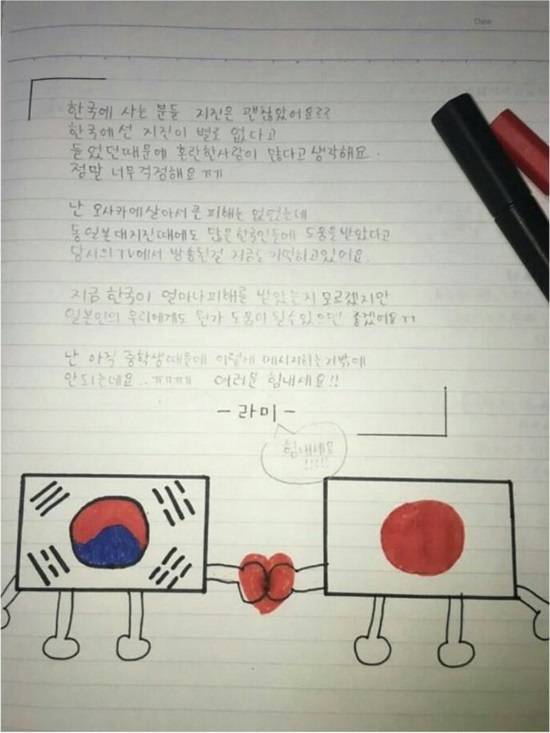 Date
한국에 사는 분들 지진은 괜찮았어요??
한국에선 지진이 별로 없다고
들었던때문에 혼란한사람이 많다고 생각해요.
정말 너무걱정해요ㅠㅠ
난 오사카에살아서 큰피해는 없었는데
동일본대지진때에도 많은한국인들에 도움을받았다고
당시의TV에서 방송된걸 지금도 기억하고있어요.
지금 한국이 얼마나피해를 받았는지 모르겠지만
일본인의 우리에게도 뭔가 도움이 될수있으면 좋겠어요ㅠㅠ
난 아직 중학생때문에 이렇게 메시지하는거밖에
안되는데요..ㅠㅠㅠㅠ 여러분 힘내세요!!
-라미-
힘내세요
!!!!!